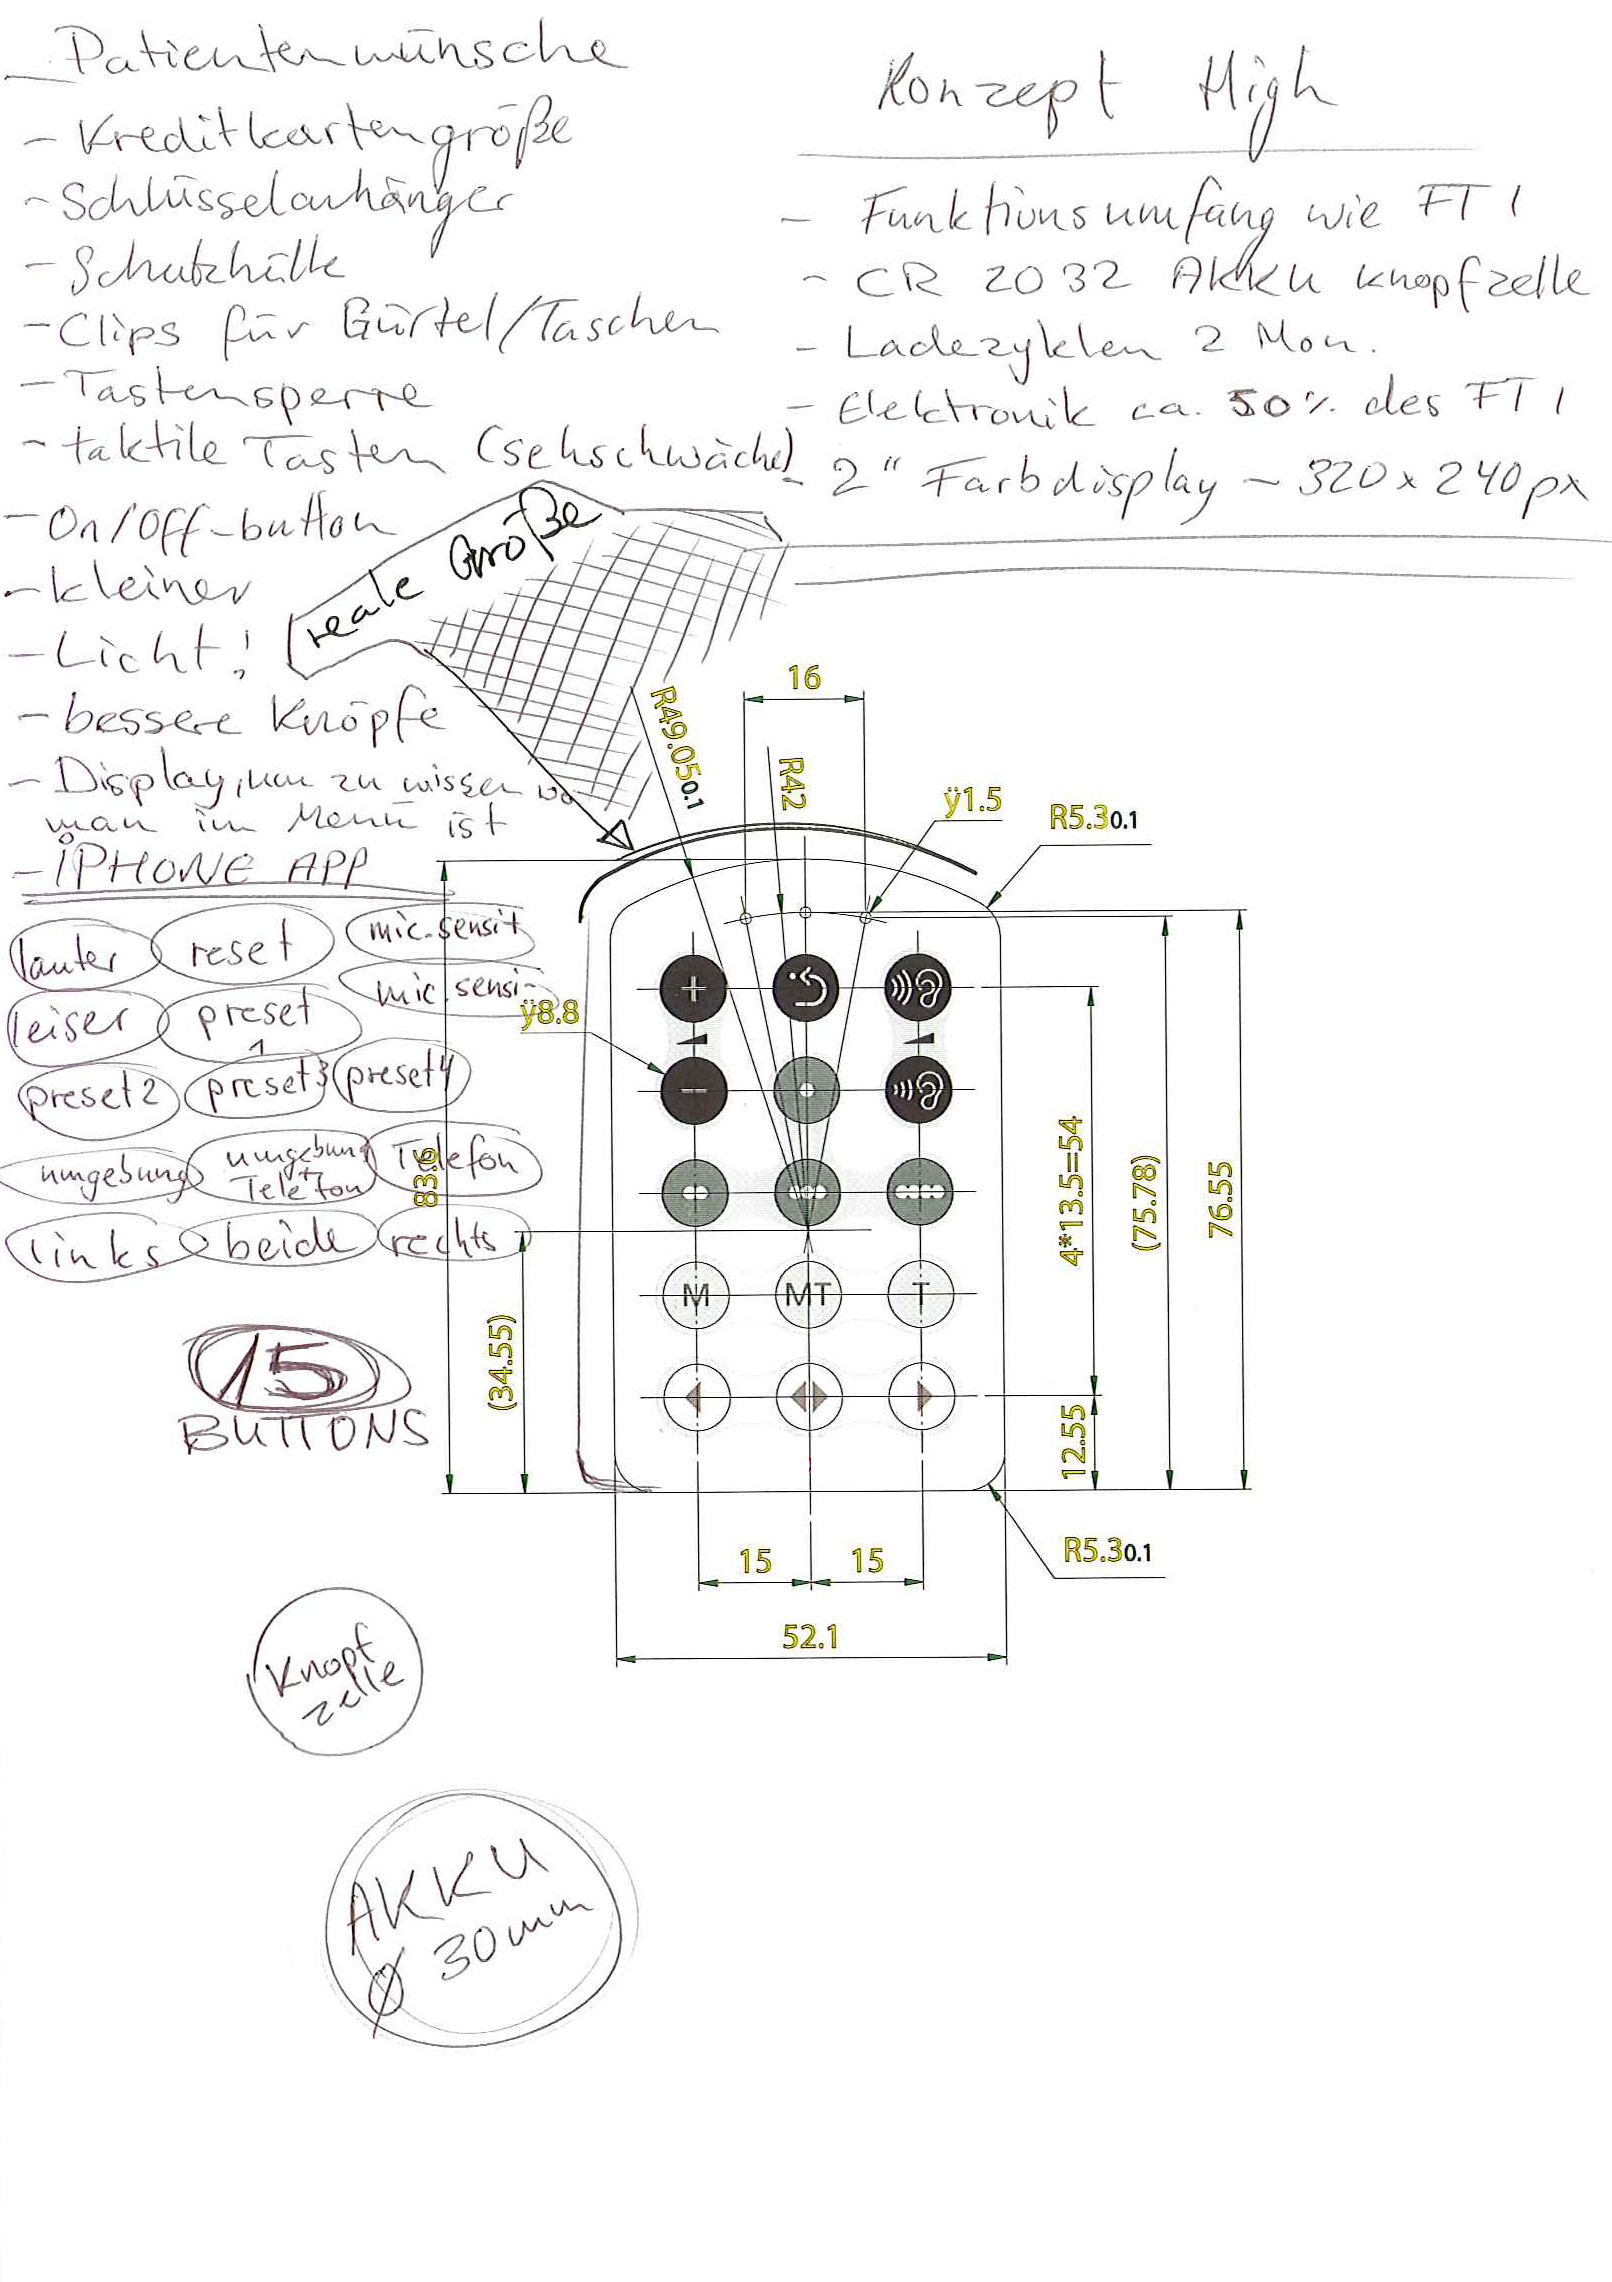 Patientenwünsche
- Kreditkartengröße
- Schlüsselanhänger
- Schutzhülle
- Clips für Gürtel/Taschen
- Tastensperre
- taktile Tasten (sehschwäche)
- On/Off-button
- kleiner
- Licht!
- bessere Knöpfe
- Display, um zu wissen wo
man im Menü ist
- iPHONE APP
Konzept High
- Funktionsumfang wie FT 1
- CR 2032 AKKU Knopfzelle
- Ladezyklen 2 Mon.
- Elektronik ca. 50% des FT 1
- 2" Farbdisplay ~ 320x240px
reale Größe
lauter reset mic.sensit
mic.sensi-
leiser preset 1
preset2 preset3 preset4
umgebung umgebung + Telefon Telefon
links beide rechts
15
BUTTONS
Knopf
zelle
AKKU
Ø 30mm
16
R49.050.1
R42
ÿ1.5
R5.30.1
ÿ8.8
+
−
M MT T
83.6
(34.55)
4*13.5=54
(75.78)
76.55
12.55
R5.30.1
15 15
52.1